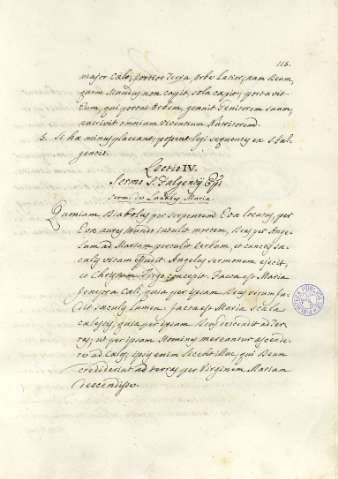 116.
major Cælo, fortior Terra, Orbe Latior; nam Deum,
quem Mundus non capit, sola capit; portavit
eum, qui portat Orbem, genuit Genitorem suum,
nutrivit omnium viventium Nutritorem.
5. Si hæ minus placeant, possent legi sequentes ex S. Ful-
gentio.
Lectio IV.
Sermo S. Fulgentij Epi
Sermo de Laudibus Mariæ
Quoniam Diabolus per serpentem Evæ locutus, per
Evæ aures mundo intulit mortem, Deus per Ange-
lum ad Mariam protulit Verbum, et cunctis sæ-
culis vitam effudit. Angelus sermonem ejecit,
et Christum Virgo concepit. Facta est Maria
fenestra Cæli, quia per ipsam Deus verum fu-
dit sæculis Lumen. Facta est Maria scala
cælestis, quia per ipsam Deus descendit ad ter-
ras, ut per ipsam Homines mereantur ascende-
re ad Cælos; ipsis enim licebit illuc, qui Deum
crediderint ad terras per Virginem Mariam
descendisse.